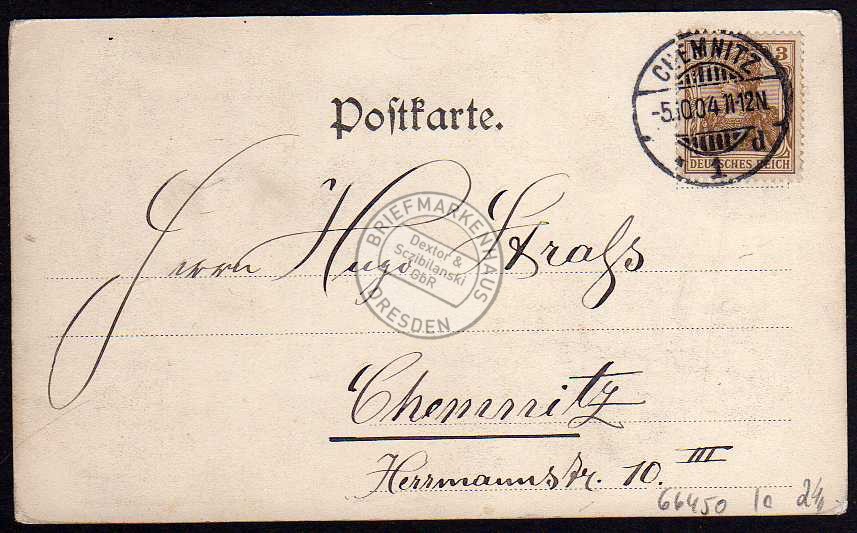 CHEMNITZ
-5.10.04 11-12N.
* 1 d
3
DEUTSCHES REICH
Postkarte.
Herrn Hugo Straſs
Chemnitz
Herrmannstr. 10. III
BRIEFMARKENHAUS
Dextor &
Sczibilanski
GbR
DRESDEN
66450 Ia